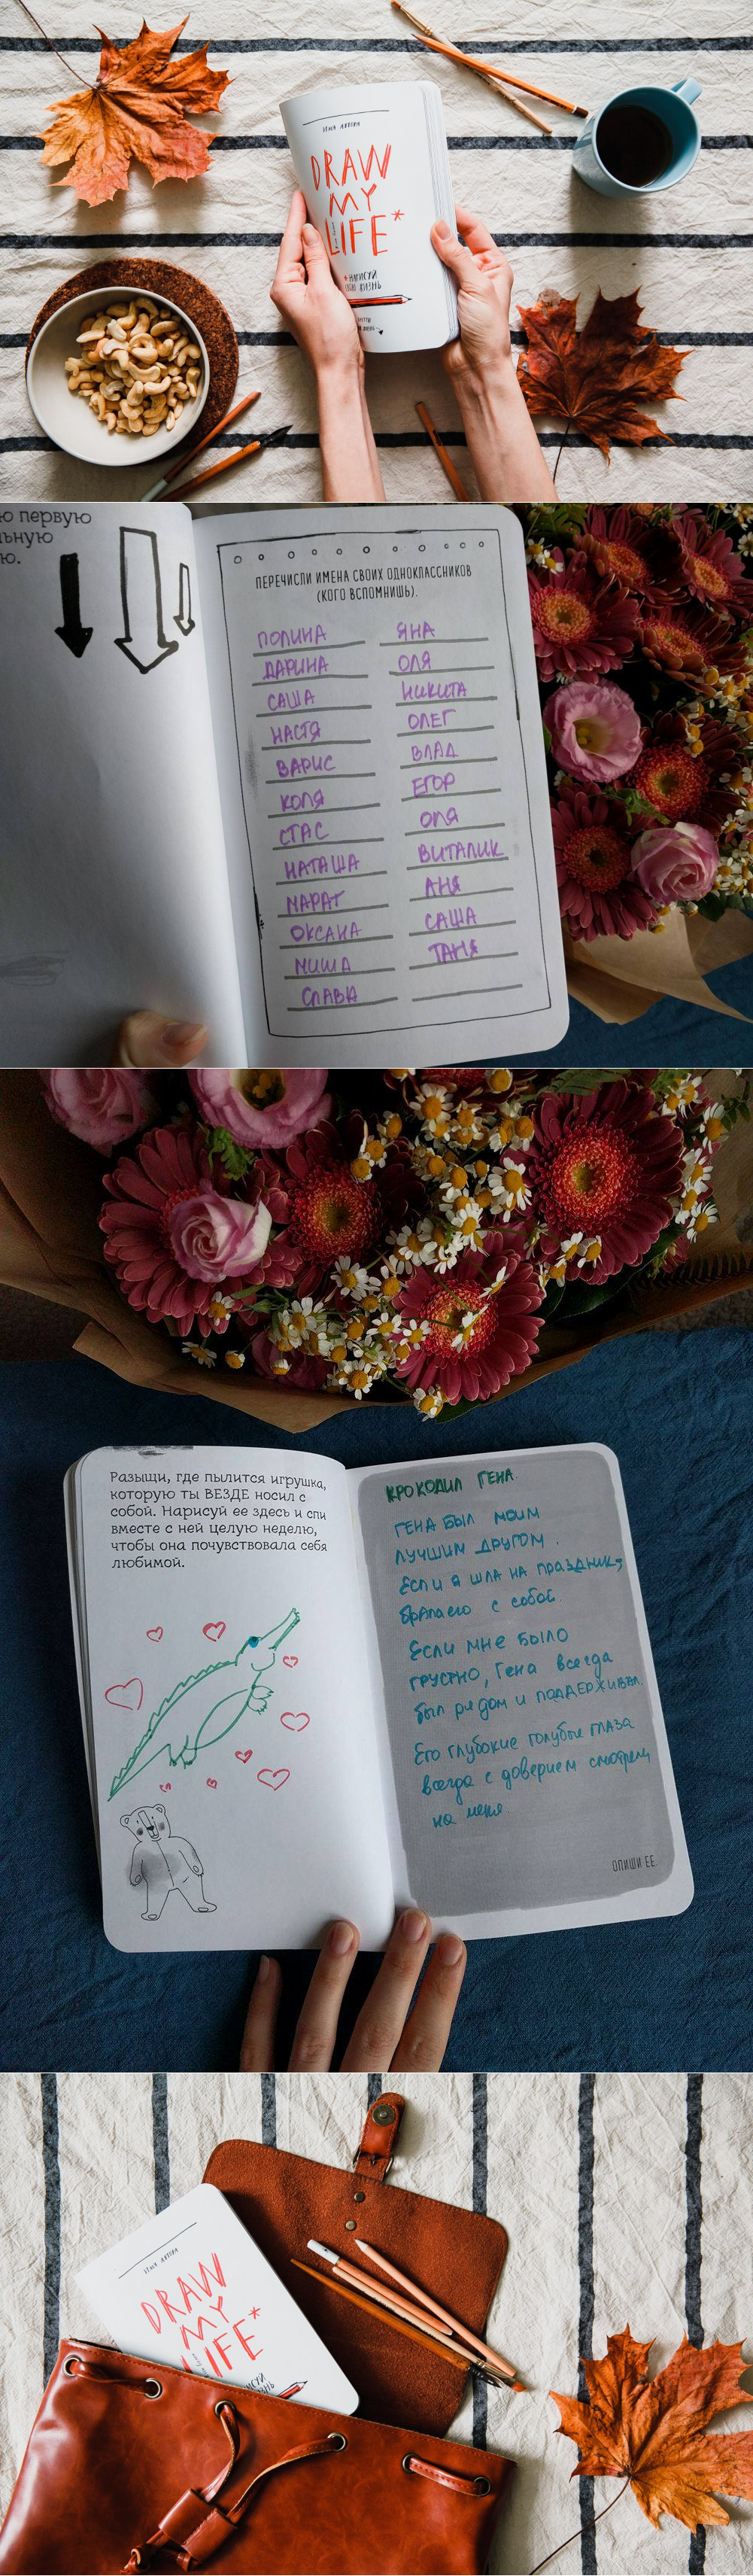 ИМЯ АВТОРА
DRAW
MY
LIFE*
*НАРИСУЙ
СВОЮ ЖИЗНЬ
ю первую
льную
ю.
ПЕРЕЧИСЛИ ИМЕНА СВОИХ ОДНОКЛАССНИКОВ
(КОГО ВСПОМНИШЬ).
ПОЛИНА
ДАРИНА
САША
НАСТЯ
ВАРИС
КОЛЯ
СТАС
НАТАША
МАРАТ
ОКСАНА
МИША
СЛАВА
ЯНА
ОЛЯ
НИКИТА
ОЛЕГ
ВЛАД
ЕГОР
ОЛЯ
ВИТАЛИК
АНЯ
САША
ТАНЯ
Разыщи, где пылится игрушка,
которую ты ВЕЗДЕ носил с
собой. Нарисуй ее здесь и спи
вместе с ней целую неделю,
чтобы она почувствовала себя
любимой.
КРОКОДИЛ ГЕНА.
ГЕНА БЫЛ МОИМ
ЛУЧШИМ ДРУГОМ.
Если я шла на праздник,
брала его с собой.
Если мне было
грустно, Гена всегда
был рядом и поддерживал.
Его глубокие голубые глаза
всегда с доверием смотрели
на меня
ОПИШИ ЕЕ.
ИМЯ АВТОРА
DRAW
MY
LIFE*